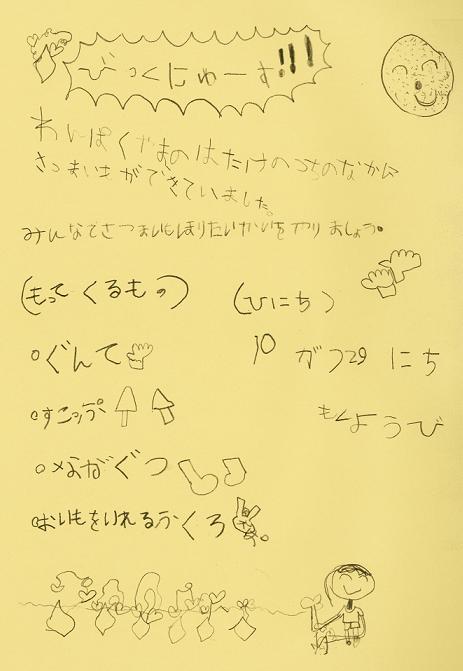 びっくにゅーす!!!
わんぱくやまのはたけのつちのなかに
さつまいもができていました。
みんなでさつまいもほりたいかいをやりましょう。
(もってくるもの)
(ひにち)
ぐんて
10がつ29にち
すこっぷ
もくようび
ながぐつ
おいもをいれるふくろ